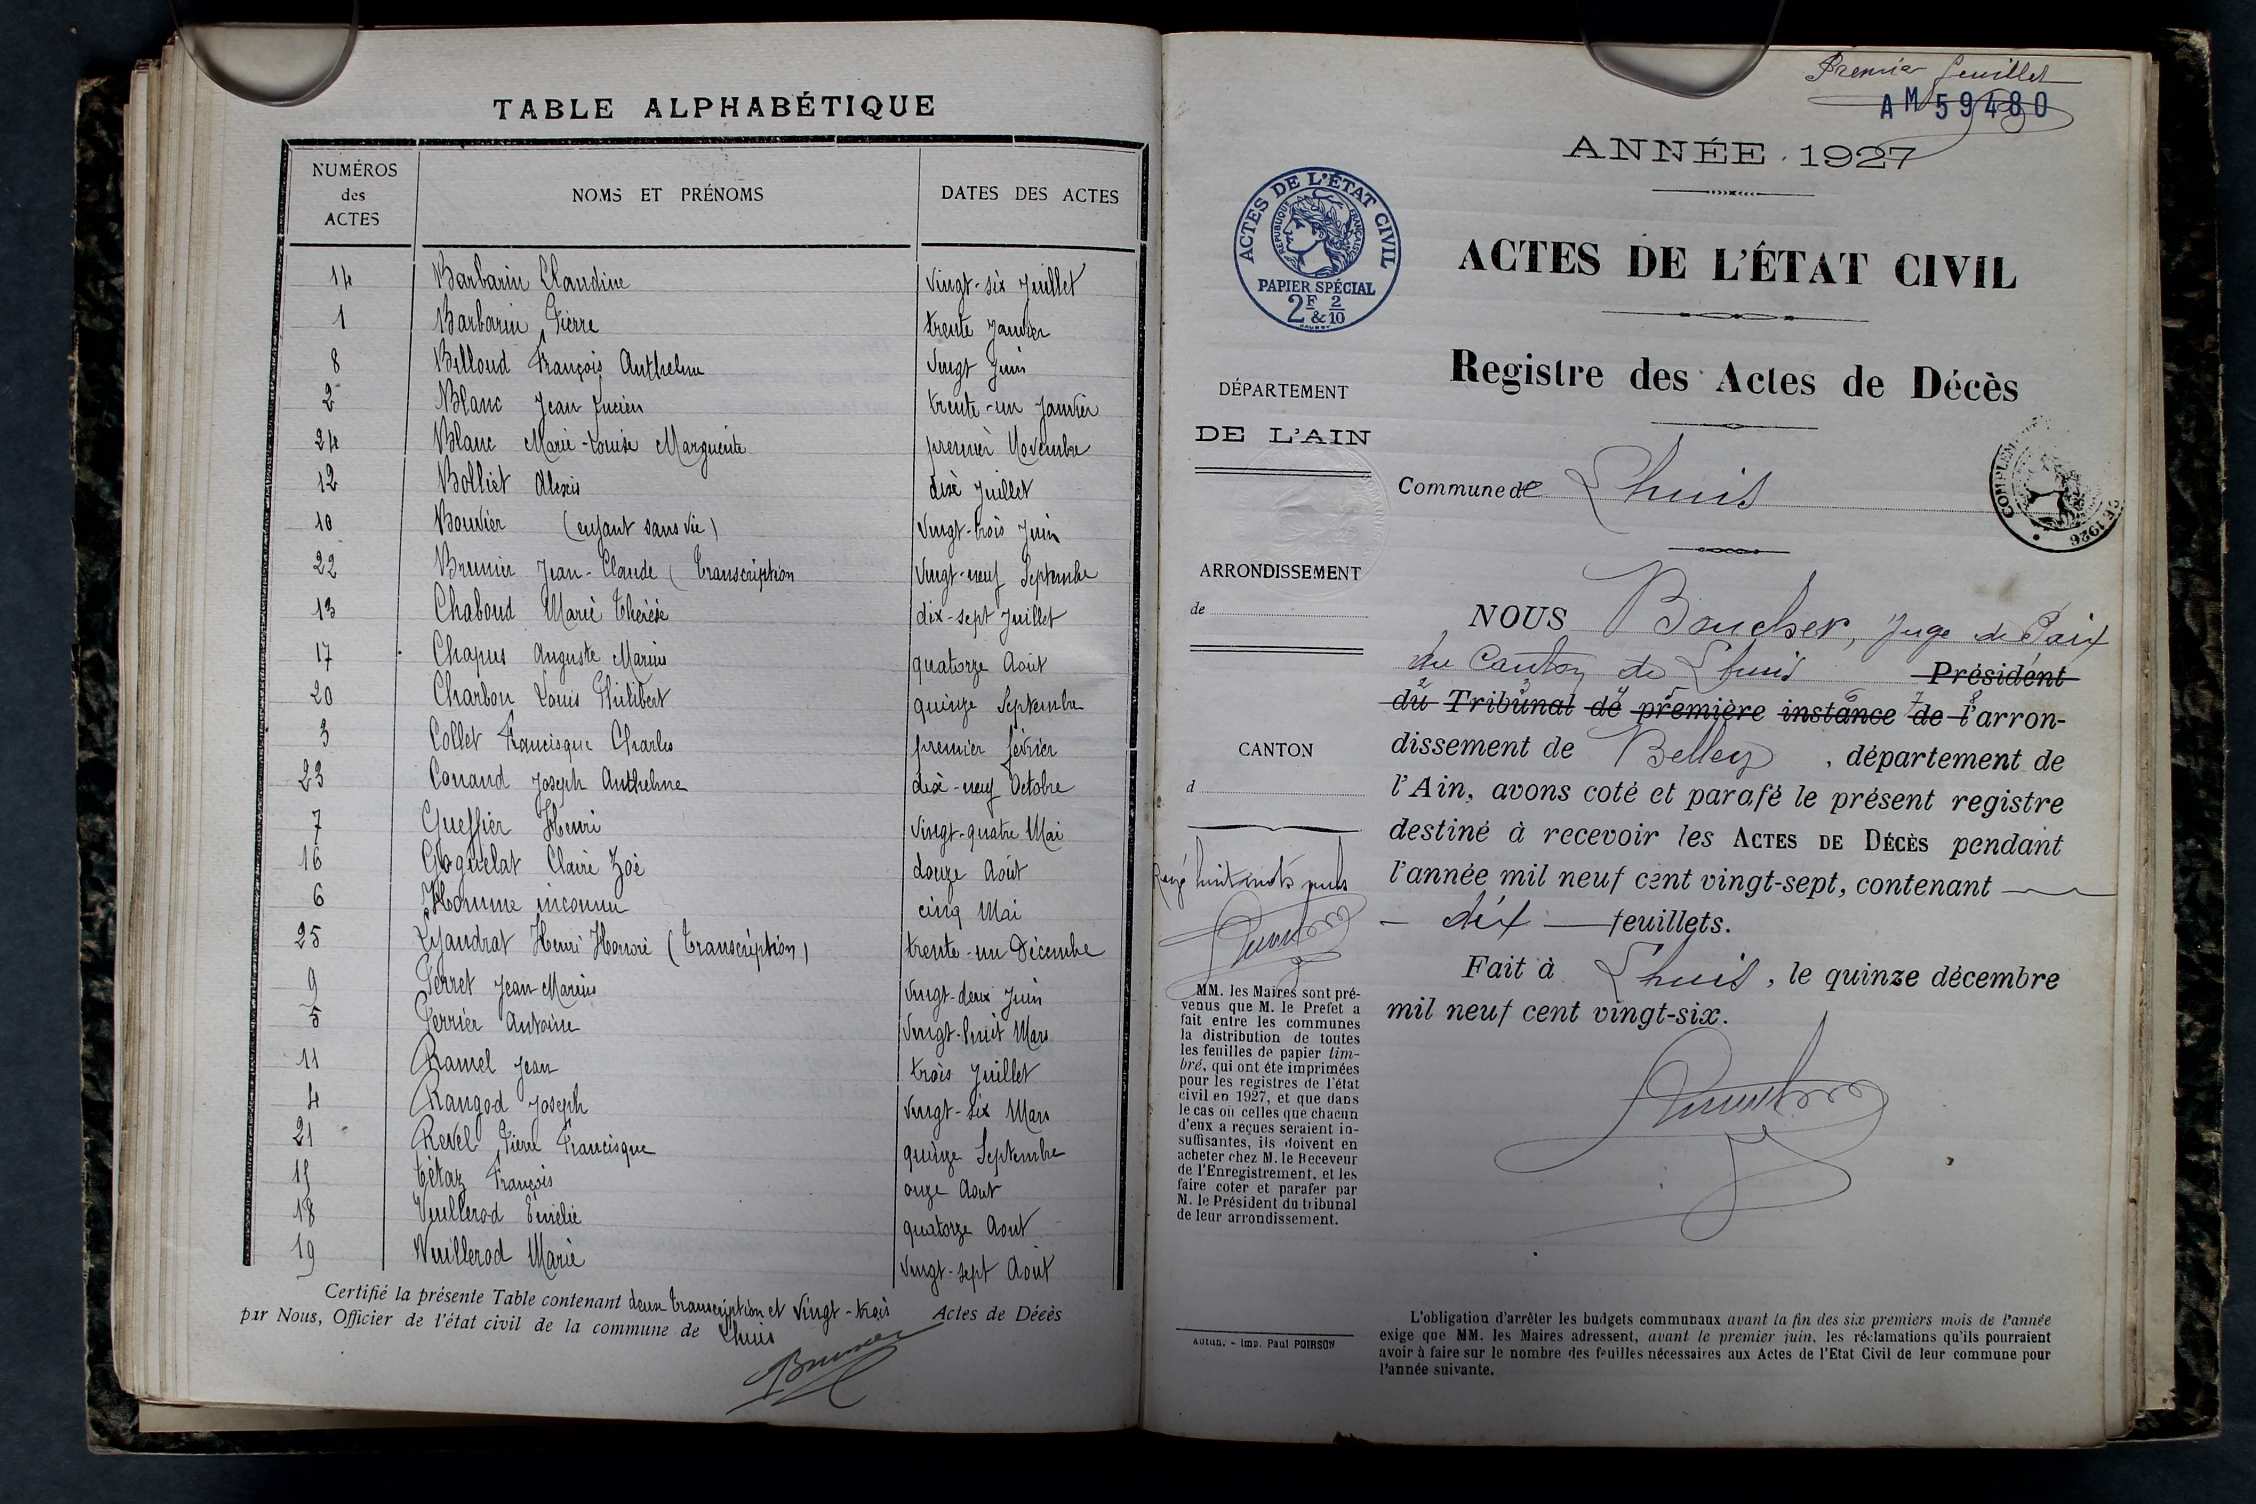 TABLE ALPHABÉTIQUE
NUMÉROS des ACTES NOMS ET PRÉNOMS DATES DES ACTES
14 Barbarin Claudine vingt-six Juillet
1 Barbarin Pierre trente Janvier
8 Billoud François Anthelme vingt Juin
2 Blanc Jean Lucien trente-un Janvier
24 Blanc Marie-Louise Marguerite premier Novembre
12 Bolliet Alexis dix Juillet
10 Bouvier (enfant sans vie) vingt-trois Juin
22 Brunier Jean-Claude (transcription vingt-neuf Septembre
13 Chaboud Marie Thérèse dix-sept Juillet
17 Chapus Auguste Marius quatorze Août
20 Charbon Louis Philibert quinze Septembre
3 Collet Francisque Charles premier février
23 Conand Joseph Anthelme dix-neuf Octobre
7 Gueffier Henri vingt-quatre Mai
16 Goguelat Claire Zoé douze Août
6 Homme inconnu cinq Mai
25 Lyandrat Henri Honoré (transcription) trente-un Décembre
9 Perret Jean Marius vingt-deux Juin
5 Perrier Antoine vingt-huit Mars
11 Ramel Jean trois Juillet
4 Rangod Joseph vingt-six Mars
21 Revel Pierre Francisque quinze Septembre
15 Tétaz François onze Aout
18 Vuillerod Emélie quatorze Aout
19 Vuillerod Marie vingt-sept Août
Certifié la présente Table contenant deux transcription et vingt-trois Actes de Décès
par Nous, Officier de l'état civil de la commune de Lhuis
Brunier
Premier feuillet
AM 59480
ANNÉE 1927
ACTES DE L'ÉTAT CIVIL
RÉPUBLIQUE FRANÇAISE
PAPIER SPÉCIAL
2F & 2/10
ACTES DE L'ÉTAT CIVIL
Registre des Actes de Décès
DÉPARTEMENT
DE L'AIN
Commune de Lhuis
1926
ARRONDISSEMENT
de
CANTON
d
NOUS Boucher, Juge de Paix
du Canton de Lhuis Président
du Tribunal de première instance de l'arron-
dissement de Belley, département de
l'Ain, avons coté et parafé le présent registre
destiné à recevoir les ACTES DE DÉCÈS pendant
l'année mil neuf cent vingt-sept, contenant
dix feuillets.
Fait à Lhuis, le quinze décembre
mil neuf cent vingt-six.
Rayé huit mots nuls
MM. les Maires sont pré-
venus que M. le Prefet a
fait entre les communes
la distribution de toutes
les feuilles de papier tim-
bré, qui ont été imprimées
pour les registres de l'état
civil en 1927, et que dans
le cas où celles que chacun
d'eux a reçues seraient in-
suffisantes, ils doivent en
acheter chez M. le Receveur
de l'Enregistrement, et les
faire coter et parafer par
M. le Président du tribunal
de leur arrondissement.
Autun. - Imp. Paul POIRSON
L'obligation d'arrêter les budgets communaux avant la fin des six premiers mois de l'année
exige que MM. les Maires adressent, avant le premier juin, les réclamations qu'ils pourraient
avoir à faire sur le nombre des feuilles nécessaires aux Actes de l'Etat Civil de leur commune pour
l'année suivante.